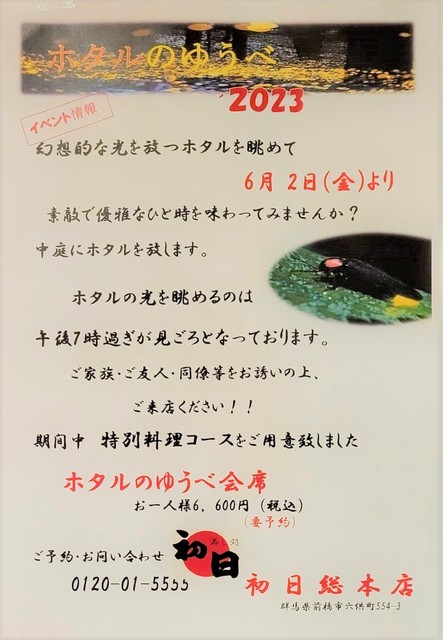 ホタルのゆうべ
2023
イベント情報
幻想的な光を放つホタルを眺めて
6月 2日(金)より
素敵で優雅なひと時を味わってみませんか？
中庭にホタルを放します。
ホタルの光を眺めるのは
午後7時過ぎが見ごろとなっております。
ご家族・ご友人・同僚等をお誘いの上、
ご来店ください！！
期間中 特別料理コースをご用意致しました
ホタルのゆうべ会席
お一人様6,600円（税込）
（要予約）
ご予約・お問い合わせ
寿し処
初日
0120-01-5555
初日総本店
群馬県前橋市六供町554-3